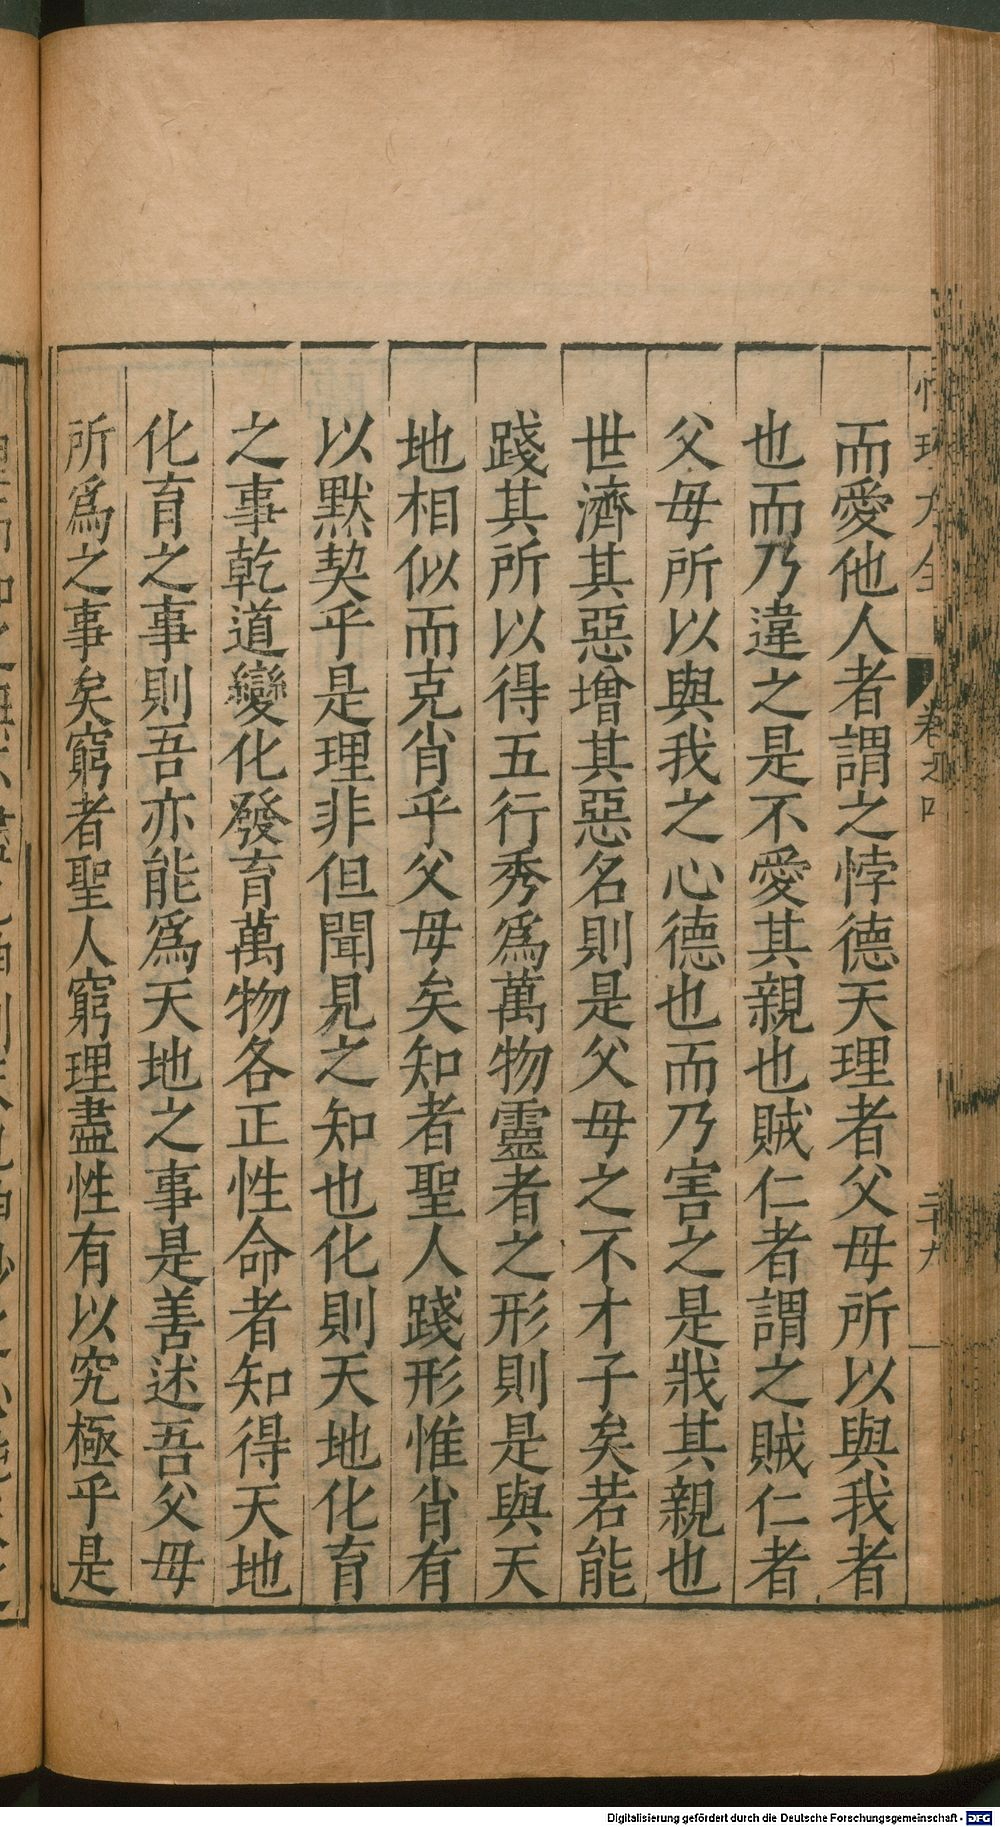 而愛他人者謂之悖德天理者父母所以與我者
也而乃違之是不愛其親也賊仁者謂之賊仁者
父母所以與我之心德也而乃害之是戕其親也
世濟其惡增其惡名則是父母之不才子矣若能
踐其所以得五行秀爲萬物靈者之形則是與天
地相似而克肖乎父母矣知者聖人踐形惟肖有
以默契乎是理非但聞見之知也化則天地化育
之事乾道變化發育萬物各正性命者知得天地
化育之事則吾亦能爲天地之事是善述吾父母
所爲之事矣窮者聖人窮理盡性有以究極乎是
卷之四
二十九
Digitalisierung gefördert durch die Deutsche Forschungsgemeinschaft - DFG